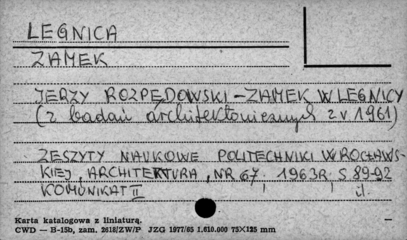 LEGNICA
ZAMEK
JERZY ROZPĘDOWSKI – ZAMEK W LEGNICY
(z badań architektonicznych z v 1961)
ZESZYTY NAUKOWE POLITECHNIKI WROCŁAWS-
KIEJ, ARCHITEKTURA, NR 67, 1963R, S 89-92
KOMUNIKAT II il.
Karta katalogowa z liniaturą.
CWD — B-15b, zam. 2618/ZW/P JZG 1977/65 1.610.000 75X125 mm